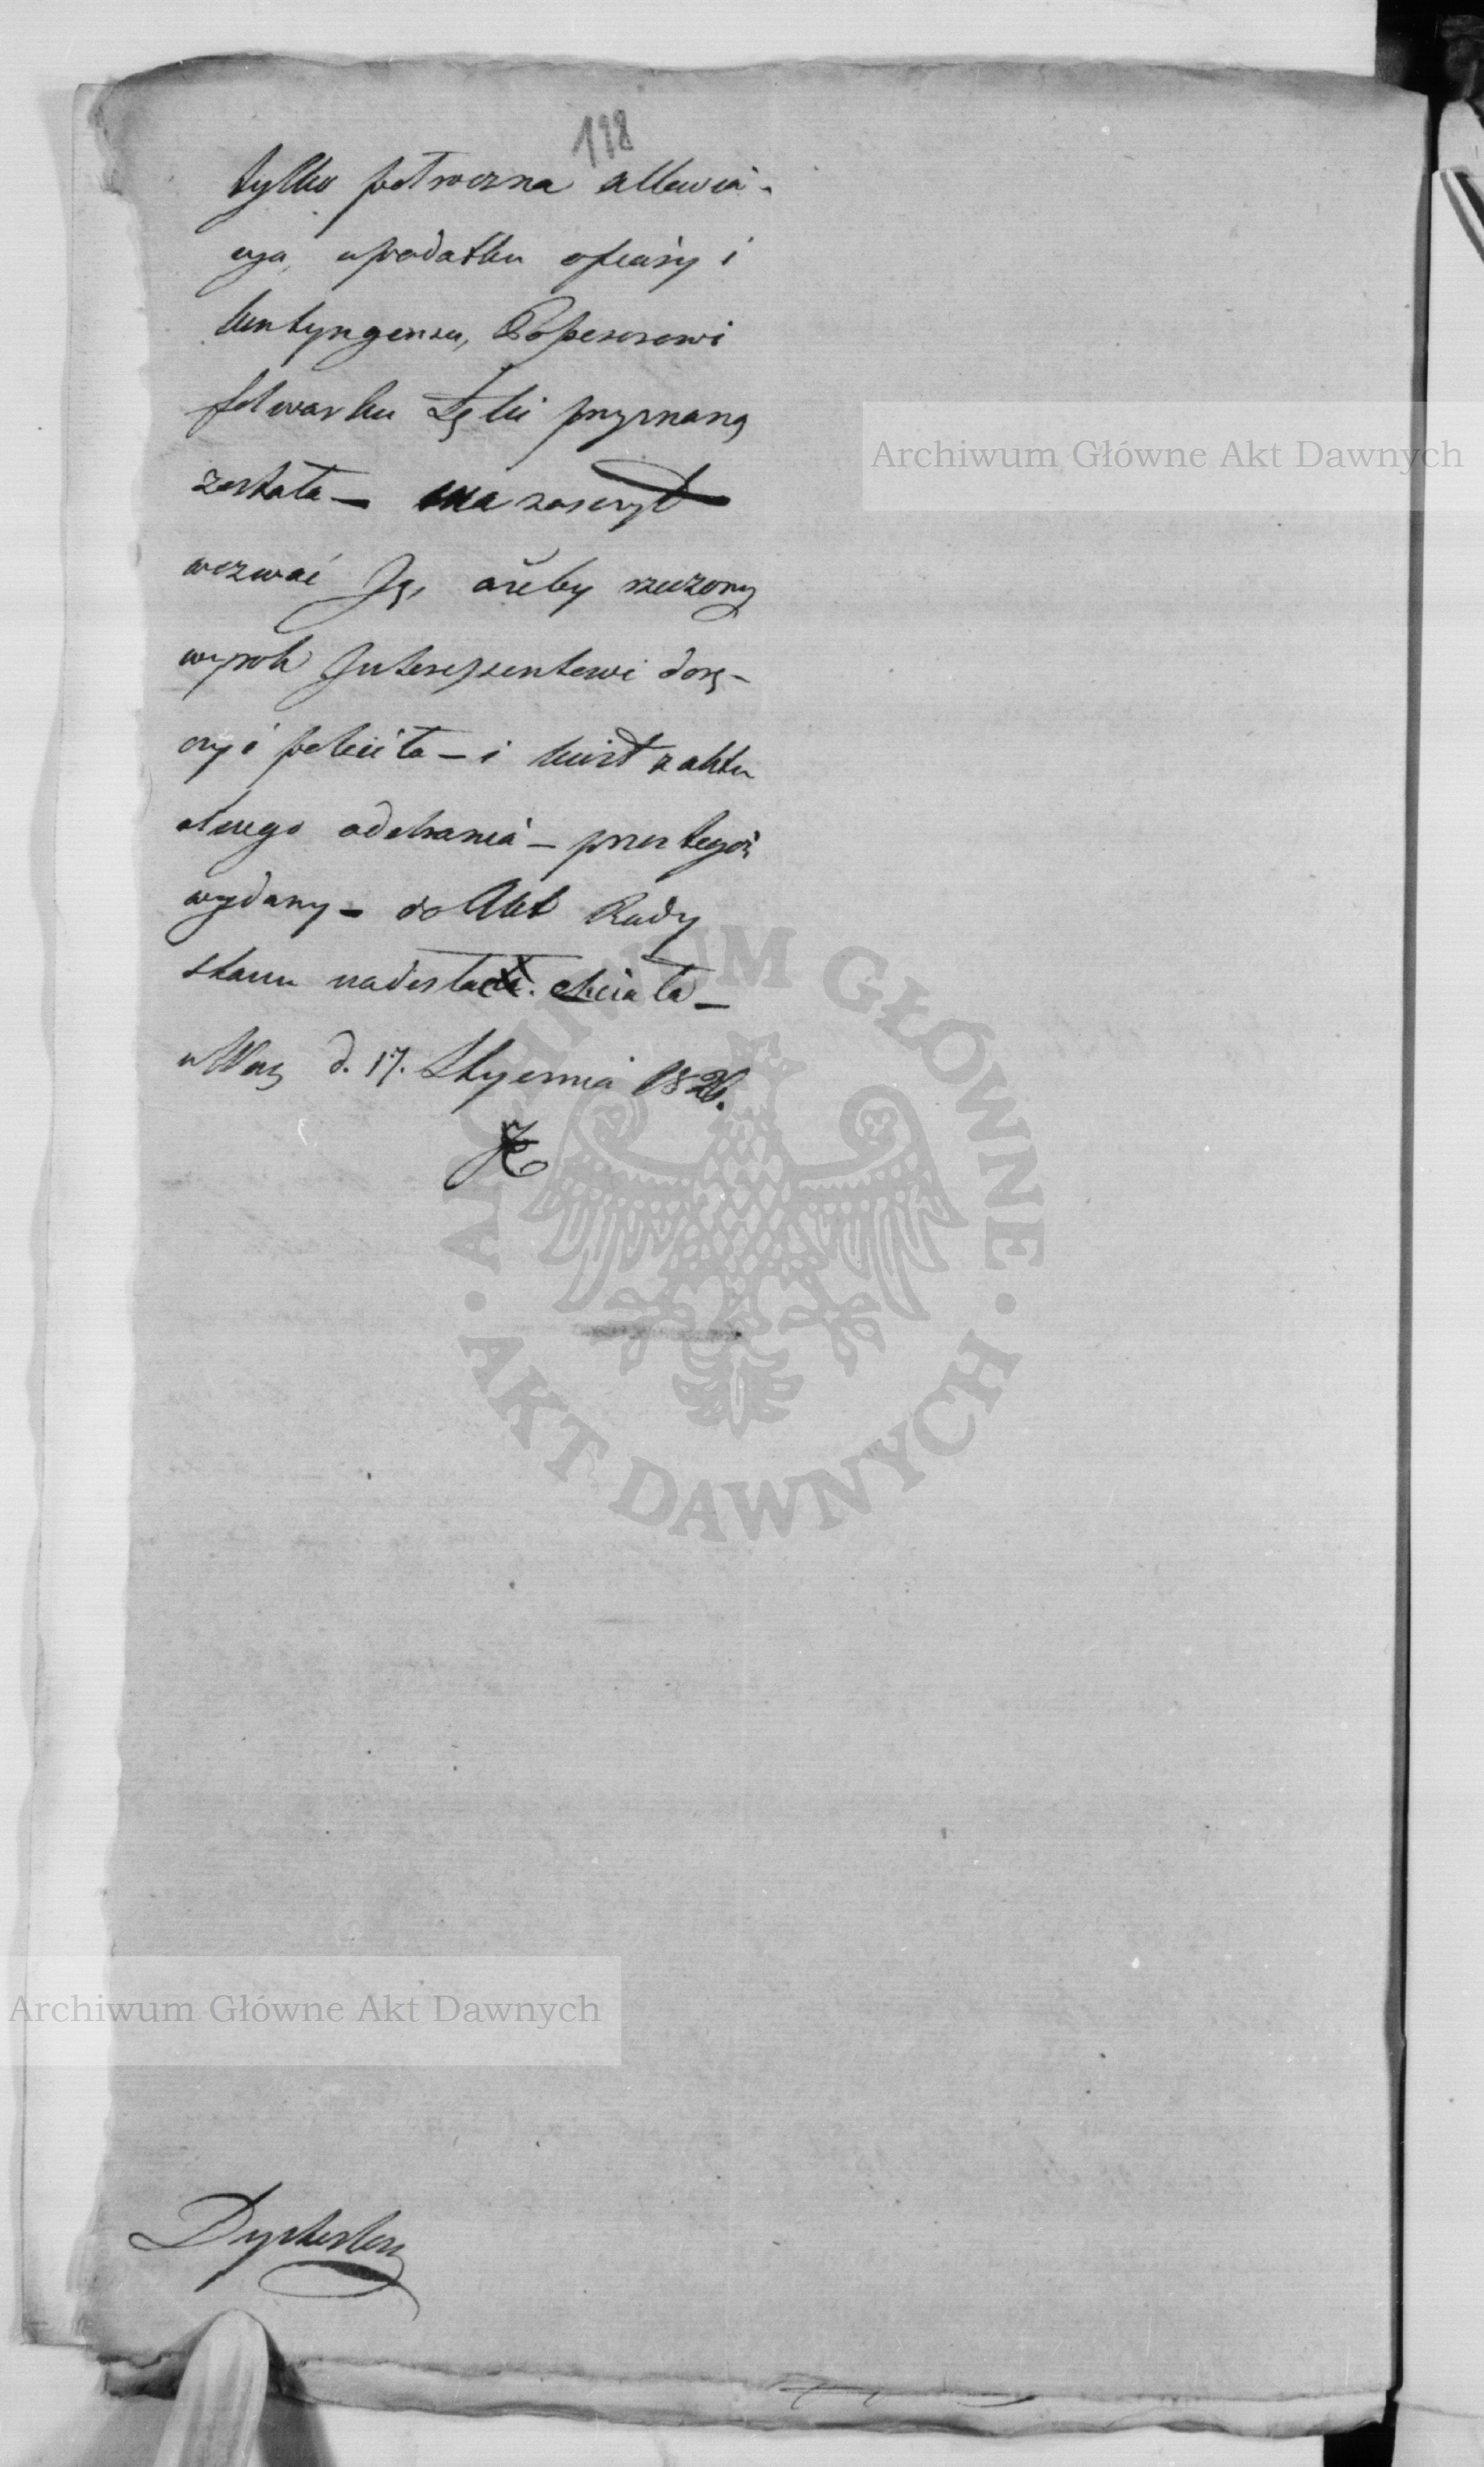 118
tylko półroczna allewia-
cya, w podatku ofiary i
kontyngensu, Possesorowi
folwarku Łęki przyznaną
została — ma zaszczyt
wezwać Ją, ażeby rzeczony
wyrok Interessentowi dorę-
czyć poleciła — i kwit z aktu
alnego odebrania — przez tegoż
wydany — do Akt Rady
stanu nadesłać chciała —
w War d. 17. Stycznia 1826.
Archiwum Główne Akt Dawnych
ARCHIWUM GŁÓWNE
AKT DAWNYCH
Archiwum Główne Akt Dawnych